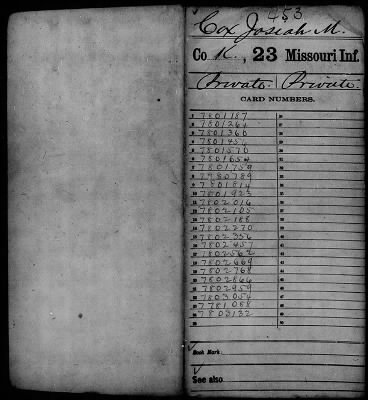 453
Cox, Josiah M.
Co. K., 23 Missouri Inf.
Private. Private.
CARD NUMBERS.
1 7801187
2 7801264
3 7801360
4 7801456
5 7801570
6 7801654
7 7801759
8 7980789
9 7801814
10 7801923
11 7802016
12 7802105
13 7802188
14 7802270
15 7802356
16 7802457
17 7802562
18 7802669
19 7802768
20 7802866
21 7802959
22 7803054
23 7781088
24 7803132
Book Mark:
See also